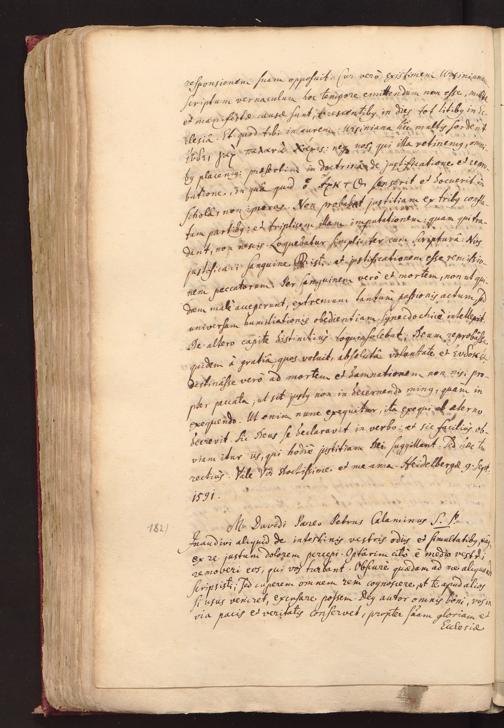 responsionem suam opposuit. Cur verò existimem Ursinianum
scriptum vernaculum hoc tempore emittendum non esse, multæ
et manifestæ causæ sunt, crescentibus in dies tot litibus in Ec-
clesia. Et quod tibi in aurem: Ursiniana hic multis sordent
nos, qui illa retinemus, omni-
bus placemus: præsertim in doctrina de justificatione et retri-
butione, in qua quid senserit et docuerit in
scholis, non ignoras. Non probabat justitiam ex tribus constan-
tem partibus: et triplicem illam imputationem, quam qui tra-
dunt, non nosti. Loquebatur simpliciter cum Scriptura: Nos
justificari sanguine Christi: et justificationem esse remissio-
nem peccatorum. Per sanguinem verò et mortem, non ut qui-
dam malè acceperunt, extremum tantum passionis actum, sed
universam humiliationis obedientiam synecdochicè intellexit.
De altero capite distinctius loqui solebat, Deum reprobasse
quidem à gratia quos voluit, absoluta voluntate et
destinasse verò ad mortem et damnationem non nisi pro-
pter peccata, ut sit justus non in decernendo minus, quam in
exequendo. Ut enim nunc exequitur, ita exequi ab æterno
decrevit. Sic Deus se declaravit in verbo: et sic facilius ob-
viam itur iis, qui hodie justitiam Dei sugillant. Sed de his tu
rectius. Vale Vir doctissime, et me ama. Heidelbergæ 9. Sept.
1591.
182) Mr. Davidi Pareo Petrus Calaminus S. P.
Inaudivi aliquid de intestinis vestris odiis et simultatibus,
ex re justum dolorem percepi. Optarim citò è medio vestri
removeri eos, qui vos turbant. Obscurè quædam ad me aliquando
scripsisti; sed cuperem omnem rem cognoscere, ut te apud alios
si usus veniret, excusare possem. Deus autor omnis boni, vos in
via pacis et veritatis conservet, propter suam gloriam et
Ecclesiæ